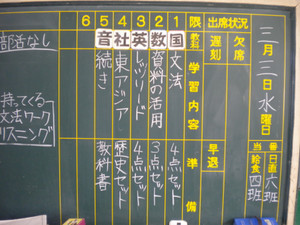 三月三日水曜日
当番
日直 六班
給食 四班
出席状況
欠席
遅刻
早退
限 教科 学習内容 準備
1 国 文法 4点セット
2 数 資料の活用 3点セット
3 英 レッツリード 4点セット
4 社 東アジア 歴史セット
5 音 続き 教科書
6
部活なし
持ってくる
文法ワーク
リスニング